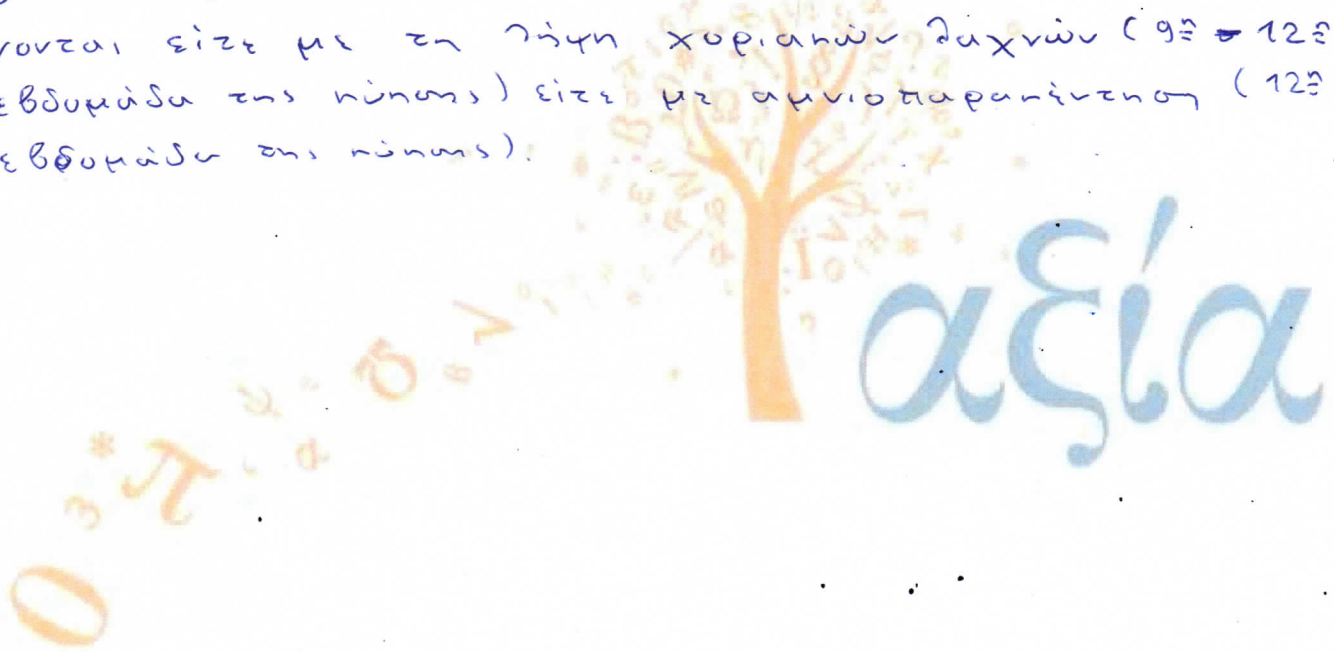 νονται είτε με τη λήψη χοριακών λαχνών (9η - 12η
εβδομάδα της κύησης) είτε με αμνιοπαρακέντηση (12η
εβδομάδα της κύησης).
αξία